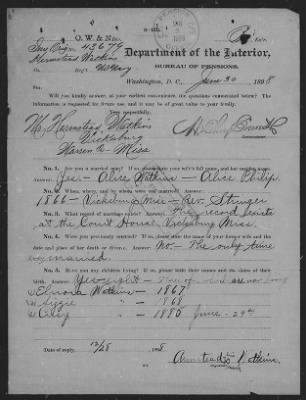 O. W. & N.
Inv Orig 43679
Department of the Interior,
BUREAU OF PENSIONS,
Washington, D. C., June 30 1898
Will you kindly answer, at your earliest convenience, the questions enumerated below? The
information is requested for future use, and it may be of great value to your family.
Watkins
Vicksburg
Warren Co Miss
No. 1. Are you a married man? If so, please state your wife's full name, and her maiden name.
Answer. Yes - Alice Watkins - Alice Philips
No. 2. When, where, and by whom were you married? Answer.
1866 - Vicksburg Miss - Rev. Stringer
No. 3. What record of marriage exists? Answer. The record exists
at the Court House, Vicksburg Miss.
No. 4. Were you previously married? If so, please state the name of your former wife and the
date and place of her death or divorce. Answer. No - The only time
married
No. 5. Have you any children living? If so, please state their names and the dates of their
birth. Answer. Yes - eight -
Watkins - 1867
Lizzie " - 1868
" - 1885 June - 29th
Date of reply, 12/28 1898
Armstead Watkins